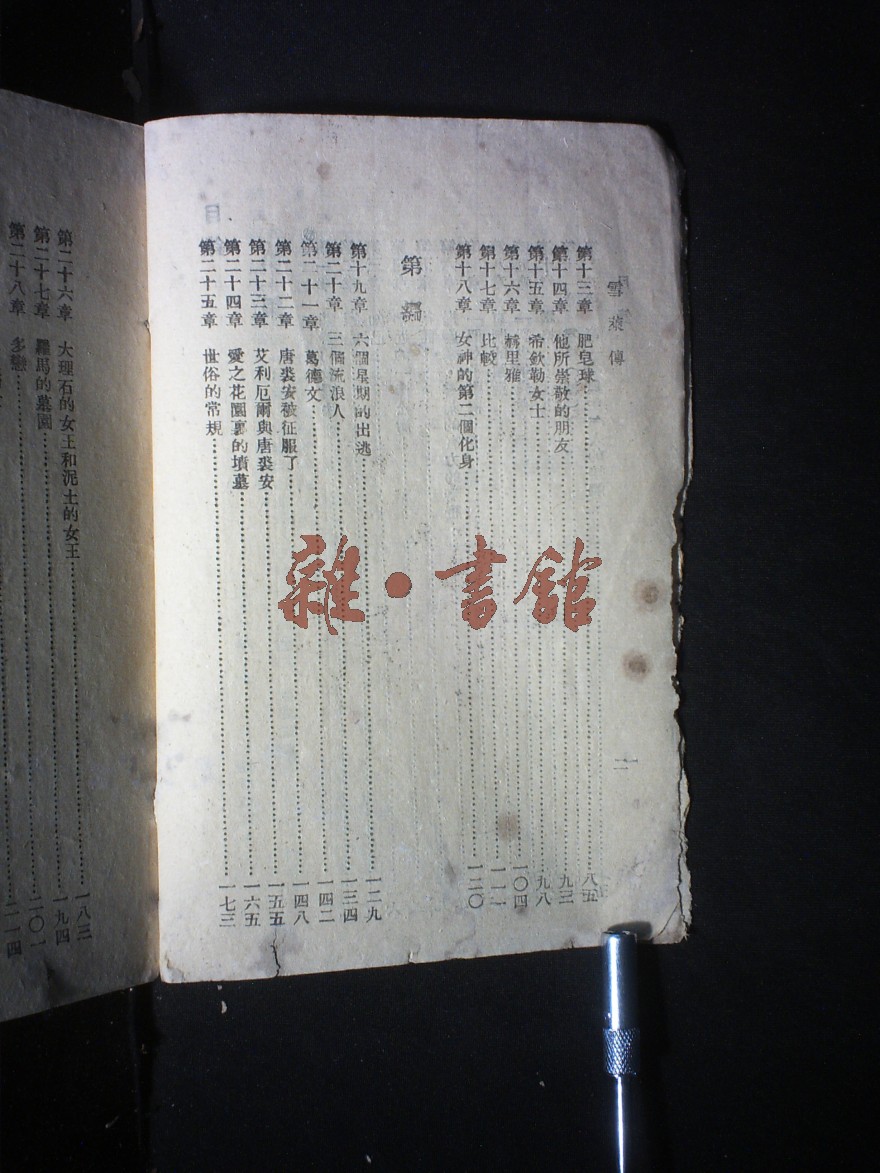 雪萊傳
二
第十三章 肥皂球……八五
第十四章 他所崇敬的朋友……九三
第十五章 希欽勒女士……九八
第十六章 赫里雅……一〇四
第十七章 比較……一一一
第十八章 女神的第二個化身……一二〇
第 編
第十九章 六個星期的出逃……一二九
第二十章 三個流浪人……一三四
第二十一章 葛德文……一四二
第二十二章 唐裘安被征服了……一四八
第二十三章 艾利厄爾與唐裘安……一五五
第二十四章 愛之花園裏的墳墓……一六五
第二十五章 世俗的常規……一七三
第二十六章 大理石的女王和泥土的女王……一八三
第二十七章 羅馬的墓園……一九四
第二十八章 多戀……二〇一
二一四
雜·書館